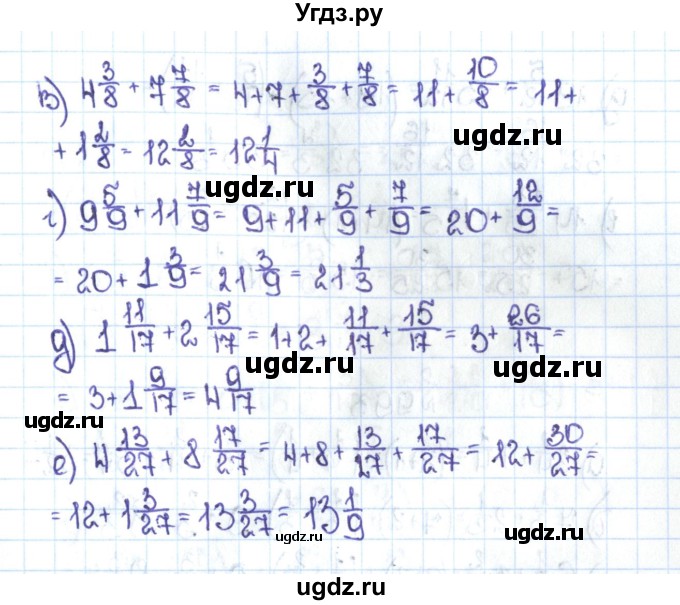 Угдз.ру
в) 4 3/8 + 7 7/8 = 4+7+ 3/8 + 7/8 = 11+ 10/8 = 11+
+ 1 2/8 = 12 2/8 = 12 1/4
ugdz.ru
ugdz.ru
г) 9 5/9 + 11 7/9 = 9+11+ 5/9 + 7/9 = 20+ 12/9 =
= 20+ 1 3/9 = 21 3/9 = 21 1/3
д) 1 11/17 + 2 15/17 = 1+2+ 11/17 + 15/17 = 3+ 26/17 =
ugdz.ru
ugdz.ru
= 3+1 9/17 = 4 9/17
ugdz.ru
е) 4 13/27 + 8 17/27 = 4+8+ 13/27 + 17/27 = 12+ 30/27 =
= 12+ 1 3/27 = 13 3/27 = 13 1/9
ugdz.ru
ugdz.ru
ugdz.ru